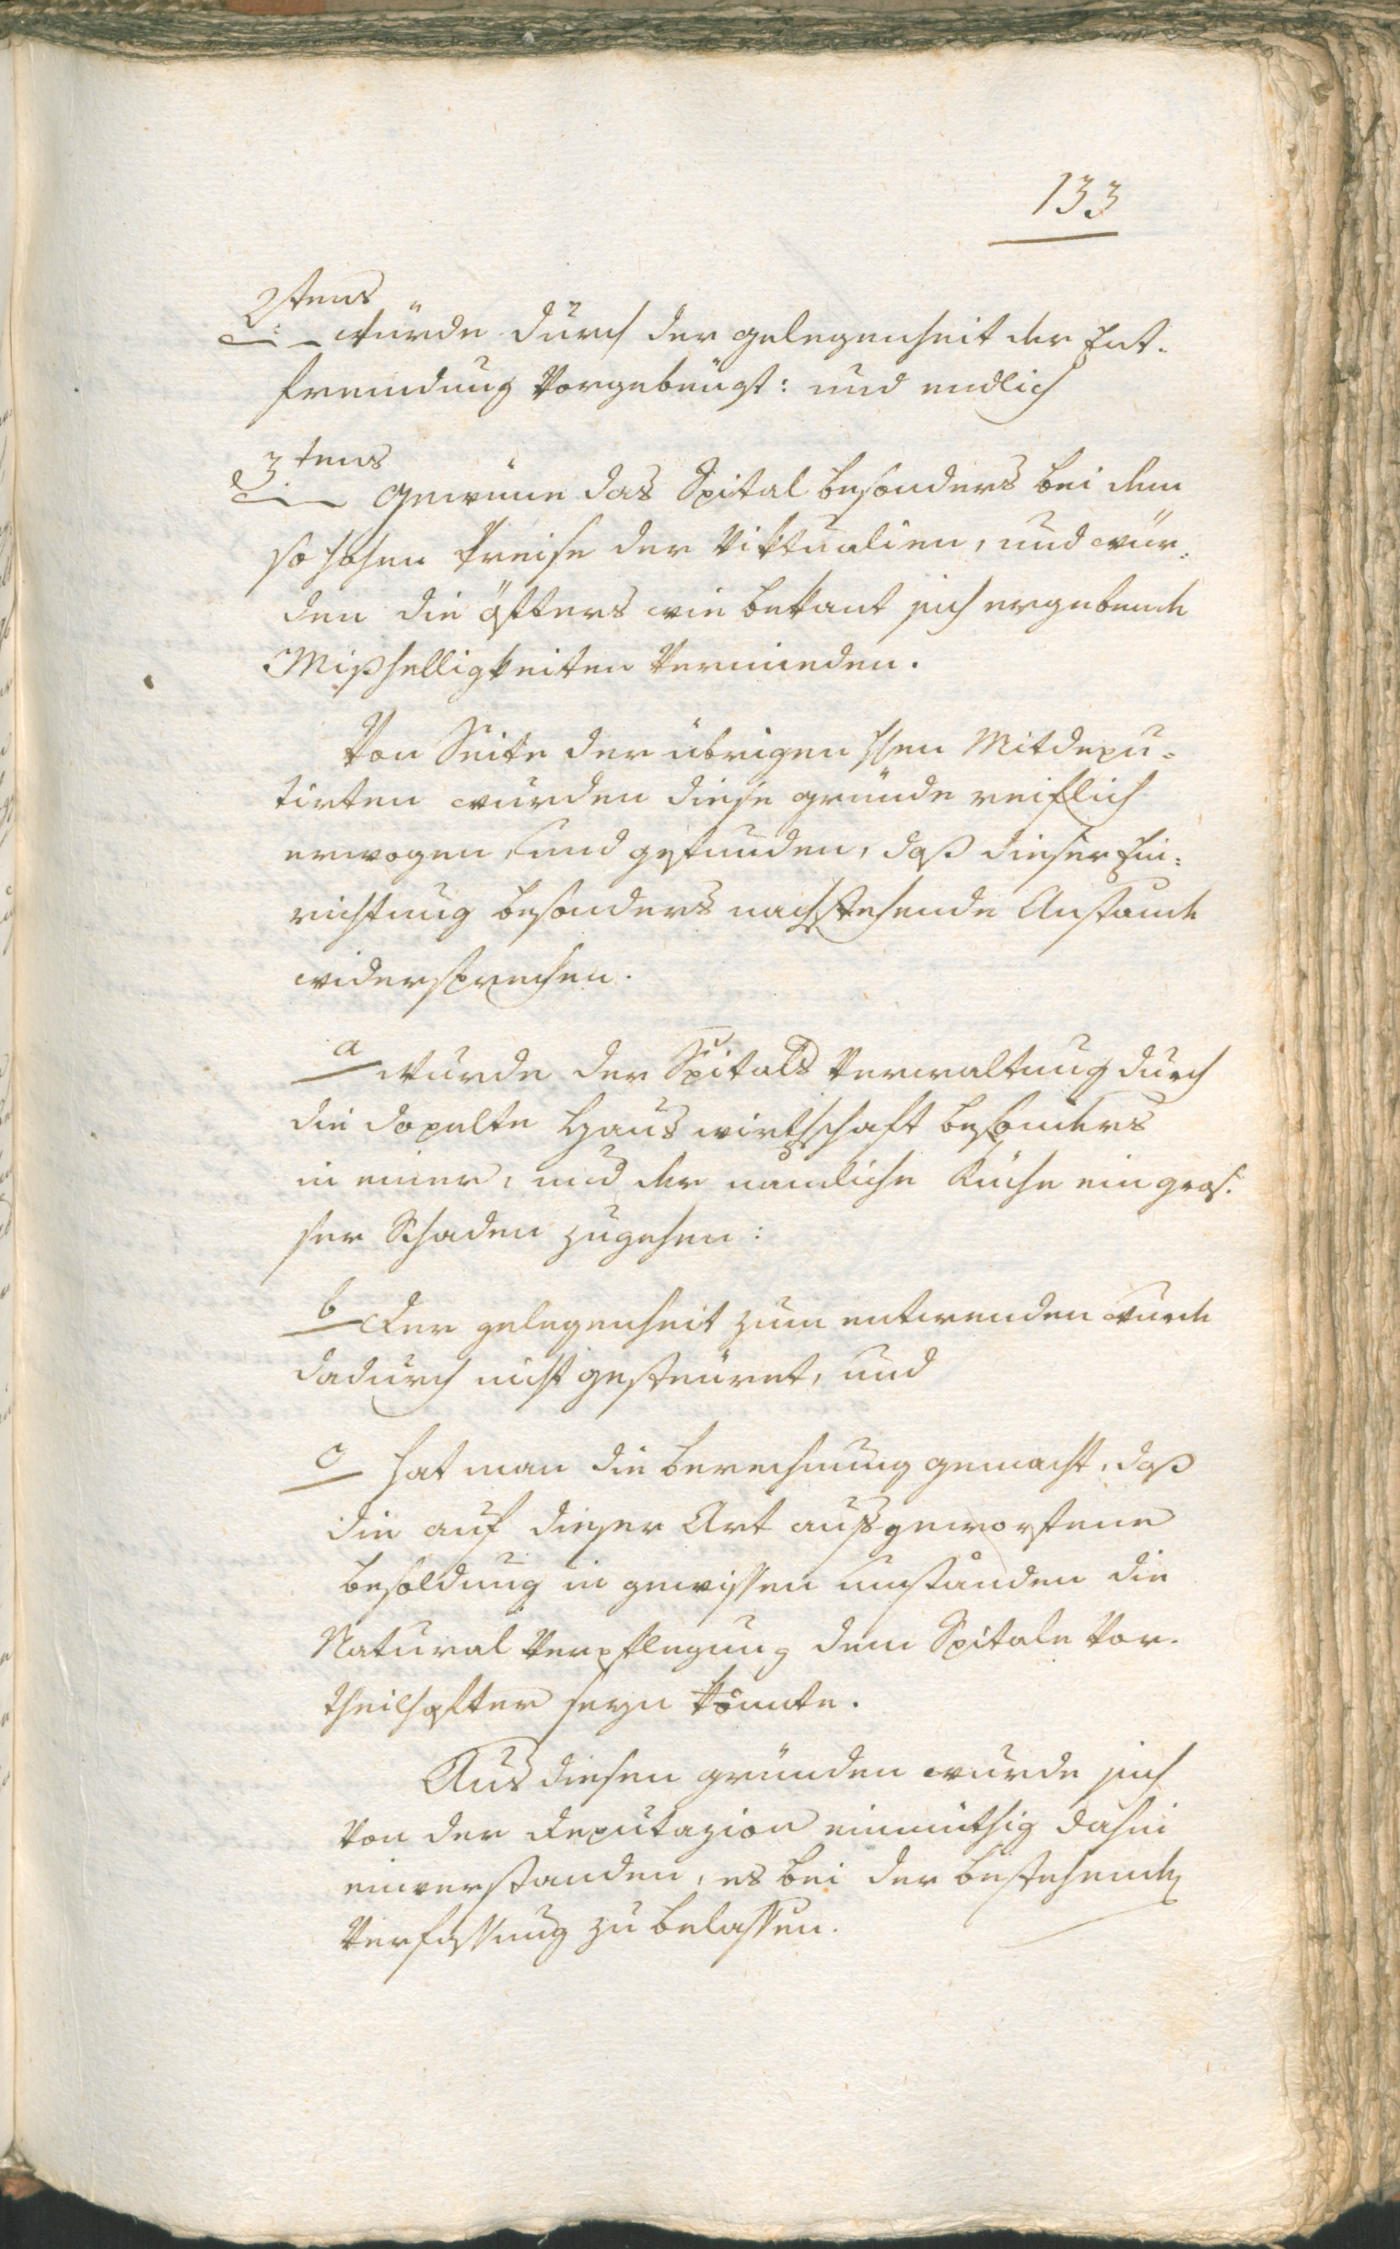 133
2tens
würde durch der gelegenheit der Ent-
fremdung Vorgebeugt: und endlich
3tens
gewinne das Spital besonders bei dem
so hohen Preise der Viktualien, und wür-
den die öfters wie bekant sich ergebende
Mißhelligkeiten Vermieden.
Von Seite der übrigen HHen Mitdepu-
tirten wurden diese gründe reiflich
erwogen, und gefunden, daß dieser Ein-
richtung besonders nachstehende Anstände
widersprechen.
a wurde der Spitals Verwaltung durch
die dopelte Hauswirthschaft besonders
in einer, und der nämliche Küche ein gros-
ser Schaden zugehen:
b Der gelegenheit zum entwenden wurde
dadurch nicht gesteüret, und
c hat man die berechnung gemacht, daß
die auf dieser Art ausgeworfene
besoldung in gewissen umständen die
Natural Verpflegung dem Spitale Vor-
theilhafter seyn könnte.
Aus diesen gründen wurde sich
Von der Deputazion einmüthig dahin
einverstanden, es bei der bestehenden
Verfassung zu belassen.